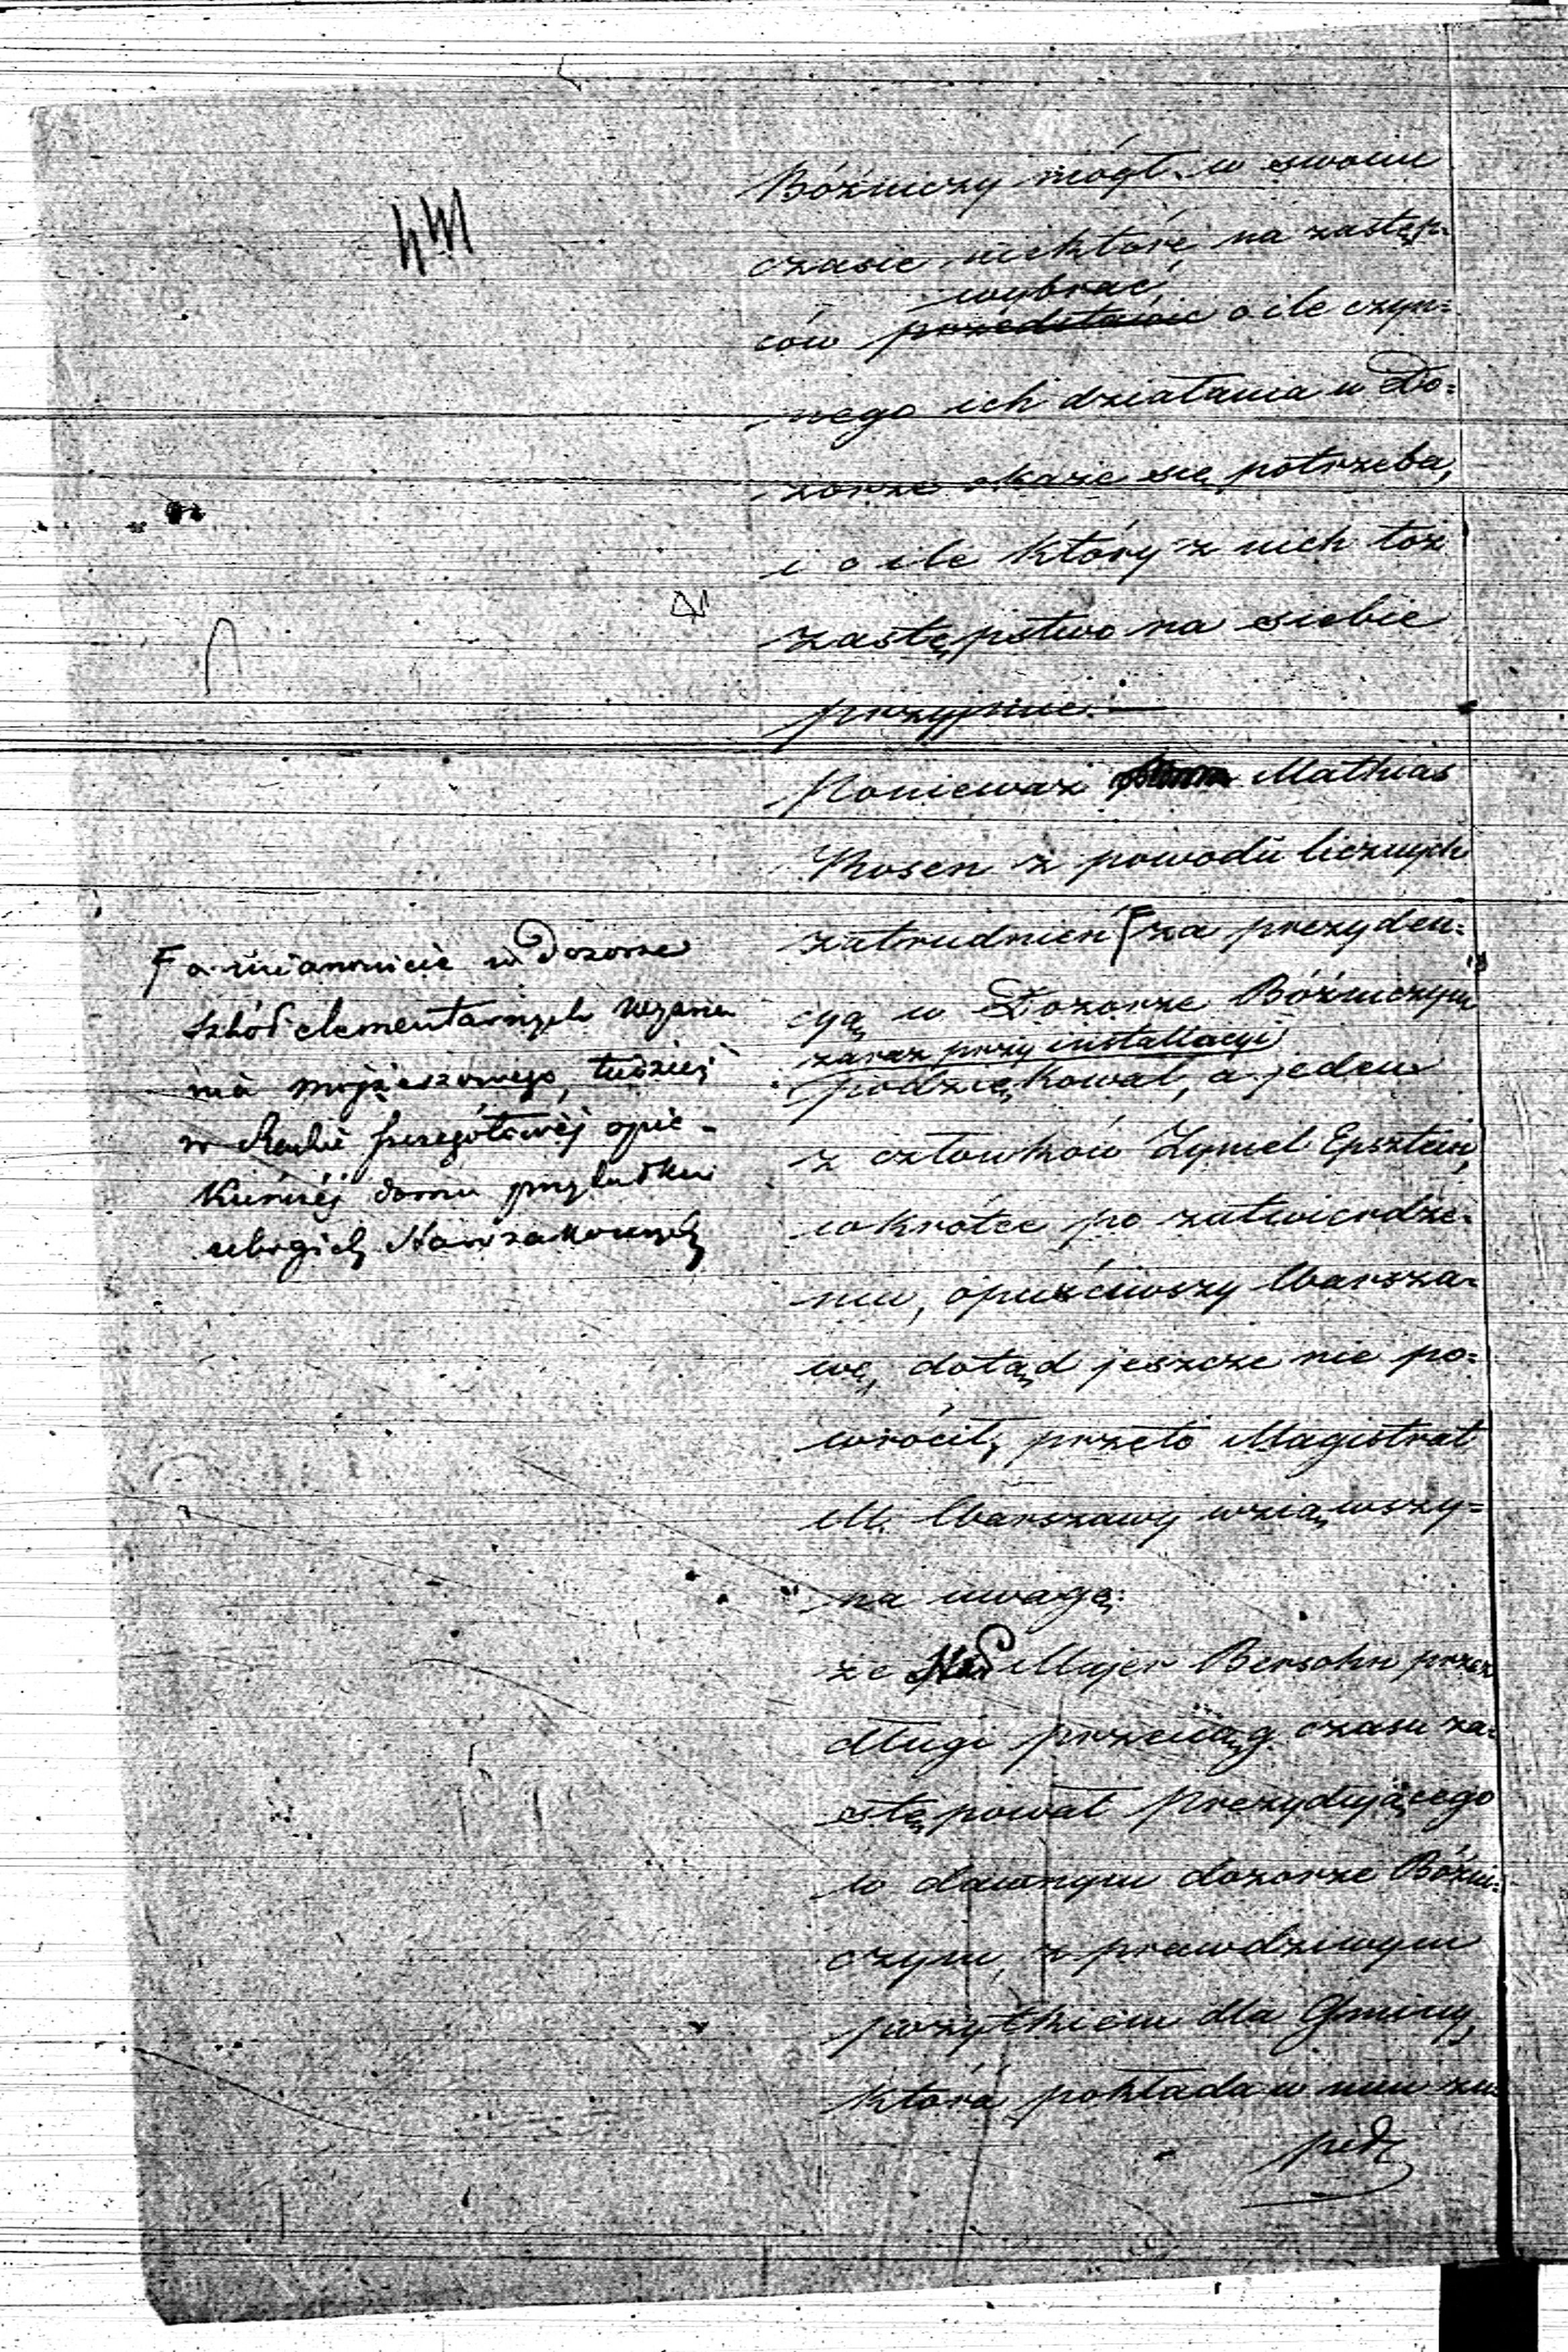 Bóźniczy mógł w swoim
czasie niektóre na zastęp-
wybrać
ców przedstawić o ile czyn=
nego ich działania w Do=
zorze okaże się potrzeba,
i o ile który z nich toż
zastępstwo na siebie
przyjmie.—
Ponieważ Mathias
Rosen z powodu licznych
zatrudnień F za prezyden=
cyą w Dozorze Bóźniczym
zaraz przy installacyi
podziękował, a jeden
z członków Zymel Epsztein,
wkrótce po zatwierdze-
niu, opuściwszy Warsza-
wę, dotąd jeszcze nie po=
wrócił, przeto Magistrat
M. Warszawy wziąwszy=
na uwagę:
że Majer Bersohn przez
długi przeciąg czasu za-
stępował Prezydującego
w dawnym dozorze Bóźni-
czym, z prawdziwym
pożytkiem dla Gminy,
która pokłada w nim zu-
peł
F a mianowicie w Dozorze
szkół elementarnych wyzna
nia mojżeszowego, tudzież
w Radzie szczegółowéj opie-
kuńczéj domu przytułku
ubogich Starozakonnych